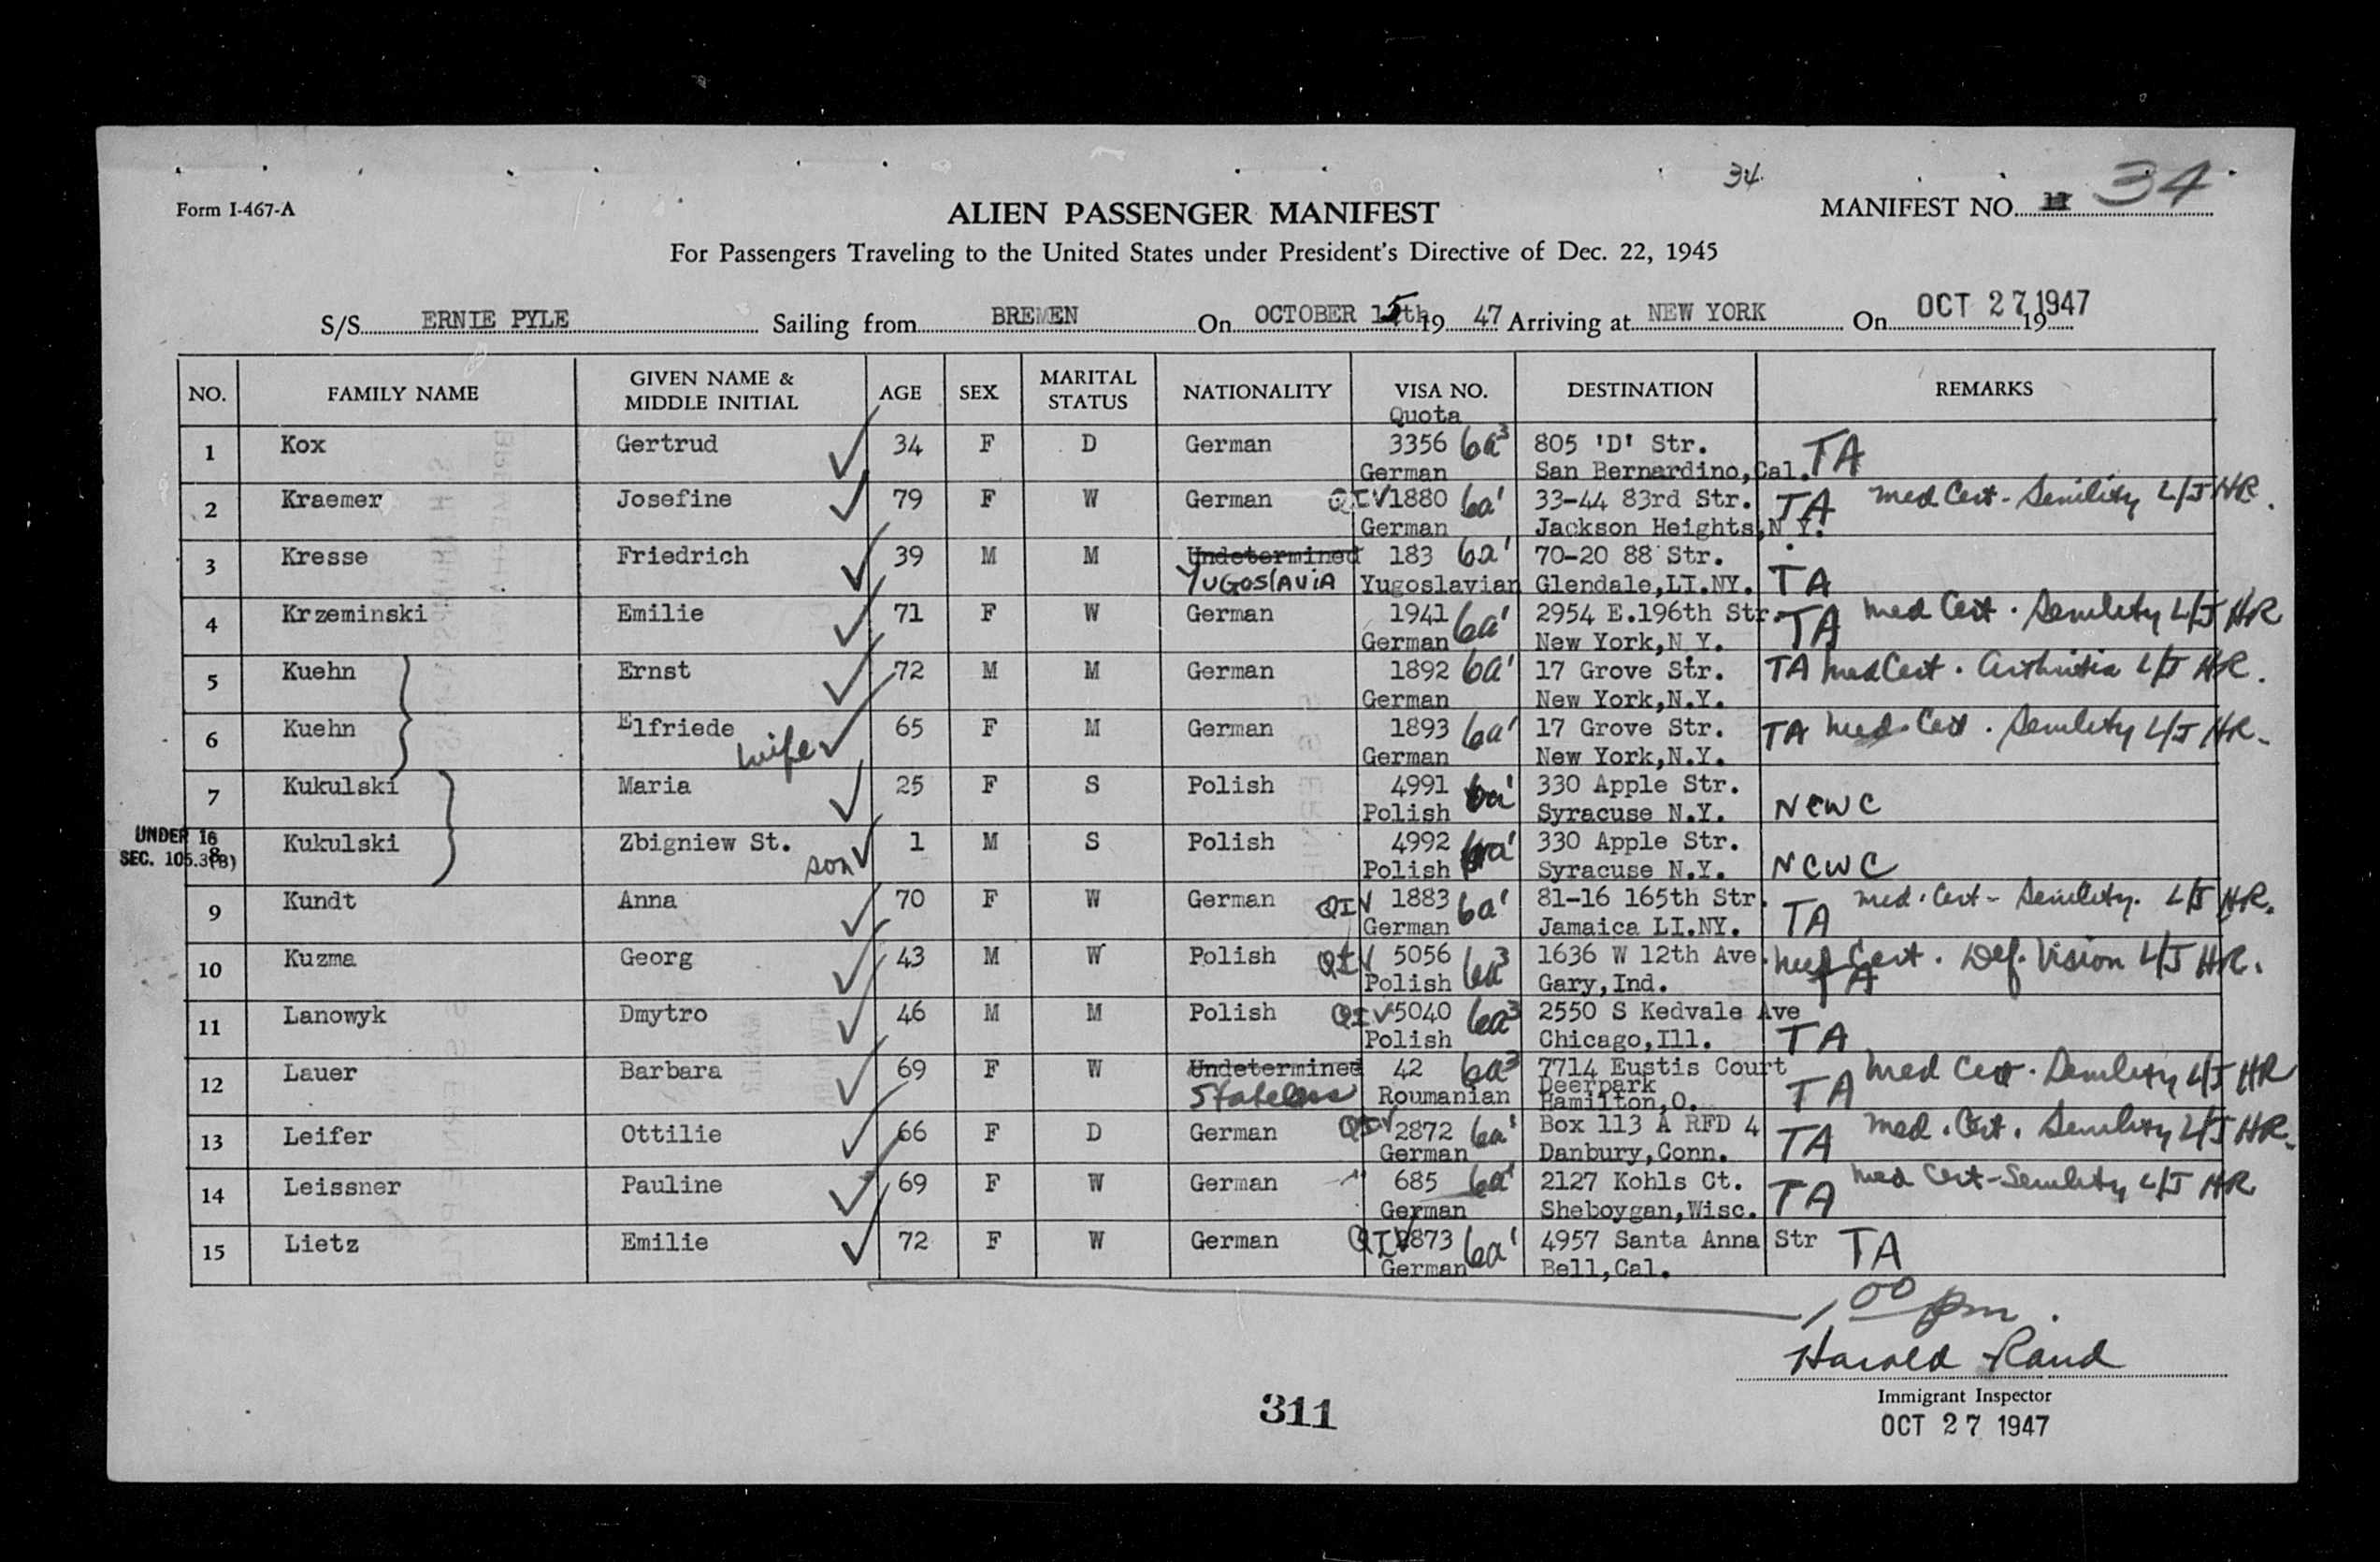 34
Form I-467-A
ALIEN PASSENGER MANIFEST
MANIFEST NO. 34
For Passengers Traveling to the United States under President's Directive of Dec. 22, 1945
S/S ERNIE PYLE Sailing from BREMEN On OCTOBER 15th 19 47 Arriving at NEW YORK On OCT 27 1947 19
NO. FAMILY NAME GIVEN NAME & MIDDLE INITIAL AGE SEX MARITAL STATUS NATIONALITY VISA NO. DESTINATION REMARKS
Quota
1 Kox Gertrud 34 F D German 3356 6a3 805 'D' Str. TA
German San Bernardino,Cal.
2 Kraemer Josefine 79 F W German QIV 1880 6a1 33-44 83rd Str. TA Med Cert - Senility L/J HR.
German Jackson Heights,N.Y.
3 Kresse Friedrich 39 M M Undetermined 183 6a1 70-20 88 Str.
YUGOSLAVIA Yugoslavian Glendale,LI.NY. TA
4 Krzeminski Emilie 71 F W German 1941 6a1 2954 E.196th Str. TA Med Cert. Senility L/J HR
German New York,N.Y.
5 Kuehn Ernst 72 M M German 1892 6a1 17 Grove Str. TA Med Cert. Arthritis L/J HR.
German New York,N.Y.
6 Kuehn Elfriede 65 F M German 1893 6a1 17 Grove Str. TA Med. Cert. Senility L/J HR.
wife German New York,N.Y.
7 Kukulski Maria 25 F S Polish 4991 6a1 330 Apple Str.
Polish Syracuse N.Y. NCWC
UNDER 16
SEC. 105.3(B)
8 Kukulski Zbigniew St. 1 M S Polish 4992 6a1 330 Apple Str.
son Polish Syracuse N.Y. NCWC
9 Kundt Anna 70 F W German QIV 1883 6a1 81-16 165th Str. TA Med. Cert - Senility. L/J HR.
German Jamaica LI.NY.
10 Kuzma Georg 43 M W Polish QIV 5056 6a3 1636 W 12th Ave. Med Cert. Def. Vision L/J HR.
Polish Gary,Ind. TA
11 Lanowyk Dmytro 46 M M Polish QIV 5040 6a3 2550 S Kedvale Ave
Polish Chicago,Ill. TA
12 Lauer Barbara 69 F W Undetermined 42 6a3 7714 Eustis Court TA Med Cert. Senility L/J HR
Stateless Roumanian Deerpark
Hamilton,O.
13 Leifer Ottilie 66 F D German QIV 2872 6a1 Box 113 A RFD 4 TA Med. Cert. Senility L/J HR.
German Danbury,Conn.
14 Leissner Pauline 69 F W German 685 6a1 2127 Kohls Ct. TA Med Cert - Senility L/J HR
German Sheboygan,Wisc.
15 Lietz Emilie 72 F W German QIV 2873 6a1 4957 Santa Anna Str TA
German Bell,Cal.
1,00 pm.
Harold Rand
Immigrant Inspector
311
OCT 27 1947